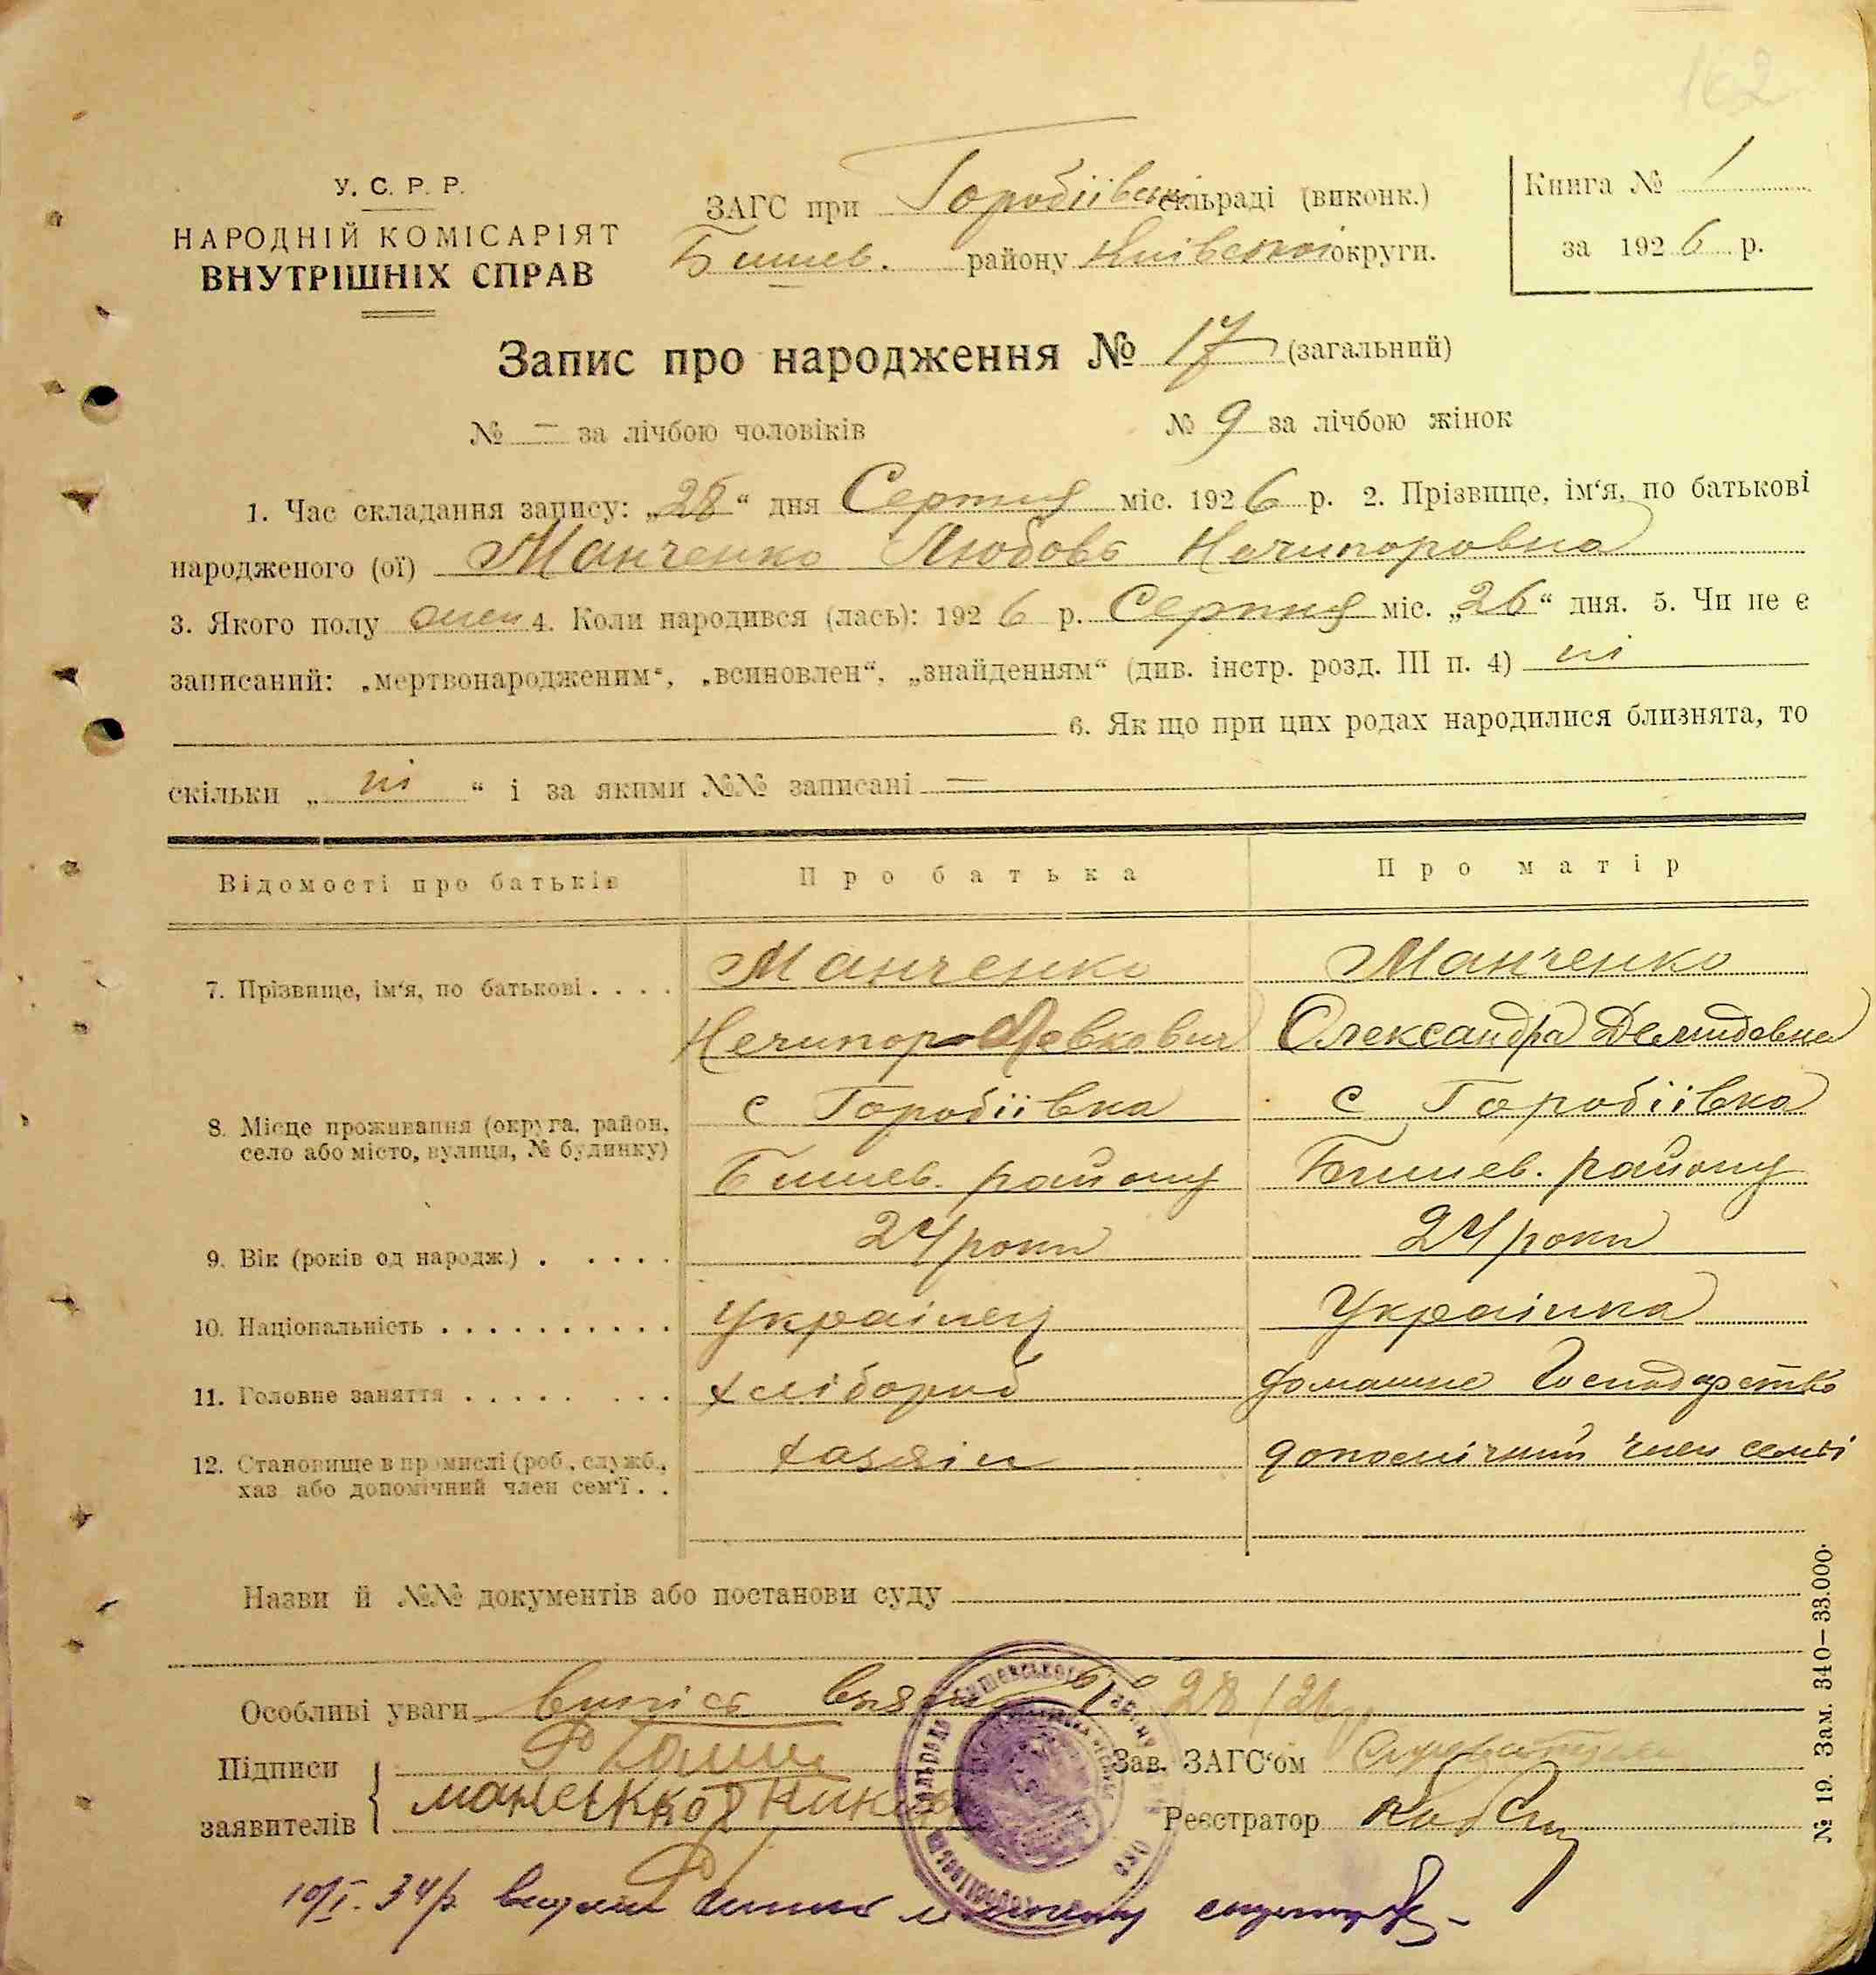 162
У. С. Р. Р.
НАРОДНІЙ КОМІСАРІЯТ
ВНУТРІШНІХ СПРАВ
ЗАГС при Городіївські сільраді (виконк.)
Бишев. району Київської округи.
Книга № 1
за 1926 р.
Запис про народження № 17 (загальний)
№ — за лічбою чоловіків № 9 за лічбою жінок
1. Час складання запису: „28“ дня Серпня міс. 1926 р. 2. Прізвище, ім‘я, по батькові
народженого (ої) Манченко Любовь Нечипоровна
3. Якого полу жен 4. Коли народився (лась): 1926 р. Серпня міс. „26“ дня. 5. Чи не є
записаний: „мертвонародженим“, „всиновлен“, „знайденням“ (див. інстр. розд. III п. 4) ні
6. Як що при цих родах народилися близнята, то
скільки „ ні “ і за якими №№ записані —
Відомості про батьків Про батька Про матір
7. Прізвище, ім‘я, по батькові . . . . Манченко Манченко
Нечипор Левкович Олександра Демидовна
8. Місце проживання (округа, район, село або місто, вулиця, № будинку) с Горобіївка с Горобіївка
Бишев. району Бишев. району
9. Вік (років од народж.) . . . . . 24 роки 24 роки
10. Національність . . . . . . . . . . Українец Українка
11. Головне заняття . . . . . . . . хлібороб домашне господарство
12. Становище в промислі (роб., служб., хаз. або допомічний член сем‘ї . . хазяїн допомічний член семьі
Назви й №№ документів або постанови суду
Особливі уваги випісь 28/26
Підписи
заявителів
Зав. ЗАГС‘ом
Реєстратор
10/I. 34 р.
№ 19. Зам. 340—33.000.